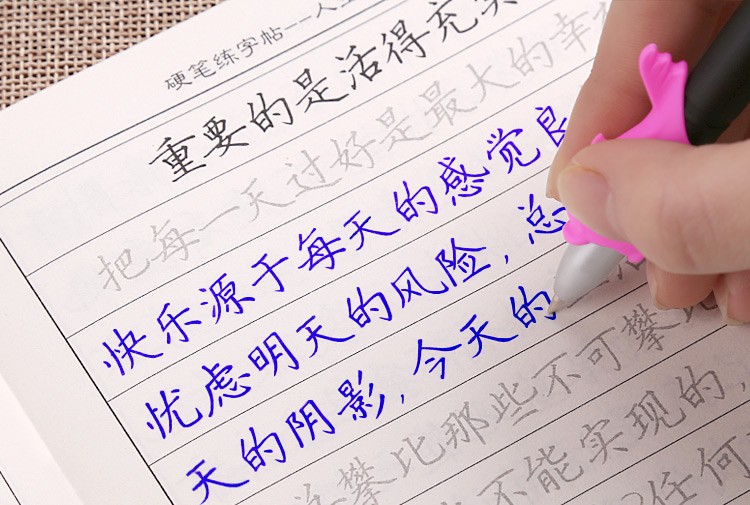 硬笔练字帖--人生
重要的是活得充实
把每一天过好是最大的幸
快乐源于每天的感觉良
忧虑明天的风险,总
天的阴影,今天的
攀比那些不可攀比
不能实现的,
任何